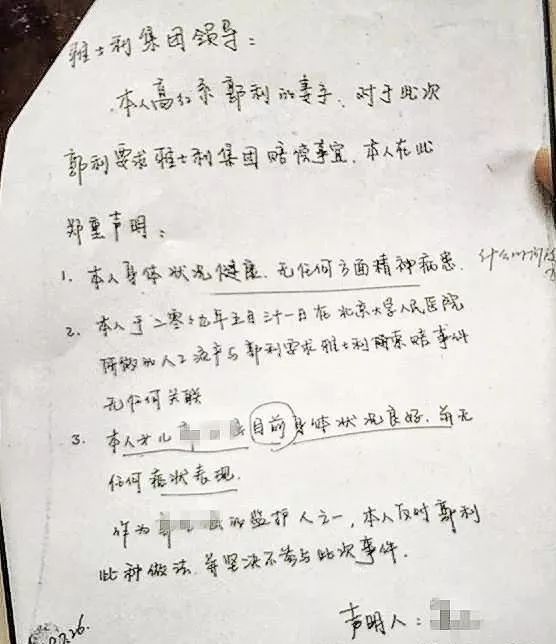 雅士利集团领导：
本人高红系郭利的妻子、对于此次
郭利要求雅士利集团赔偿事宜、本人在此
郑重声明：
1. 本人身体状况健康、无任何方面精神病患.
什么时间
2. 本人于二零零九年五月三十一日在北京大学人民医院
所做的人工流产与郭利要求雅士利所索赔事件
无任何关联
3. 本人女儿 目前身体状况良好、并无
任何症状表现.
作为 的监护人之一，本人反对郭利
此种做法、并坚决不参与此次事件.
声明人：